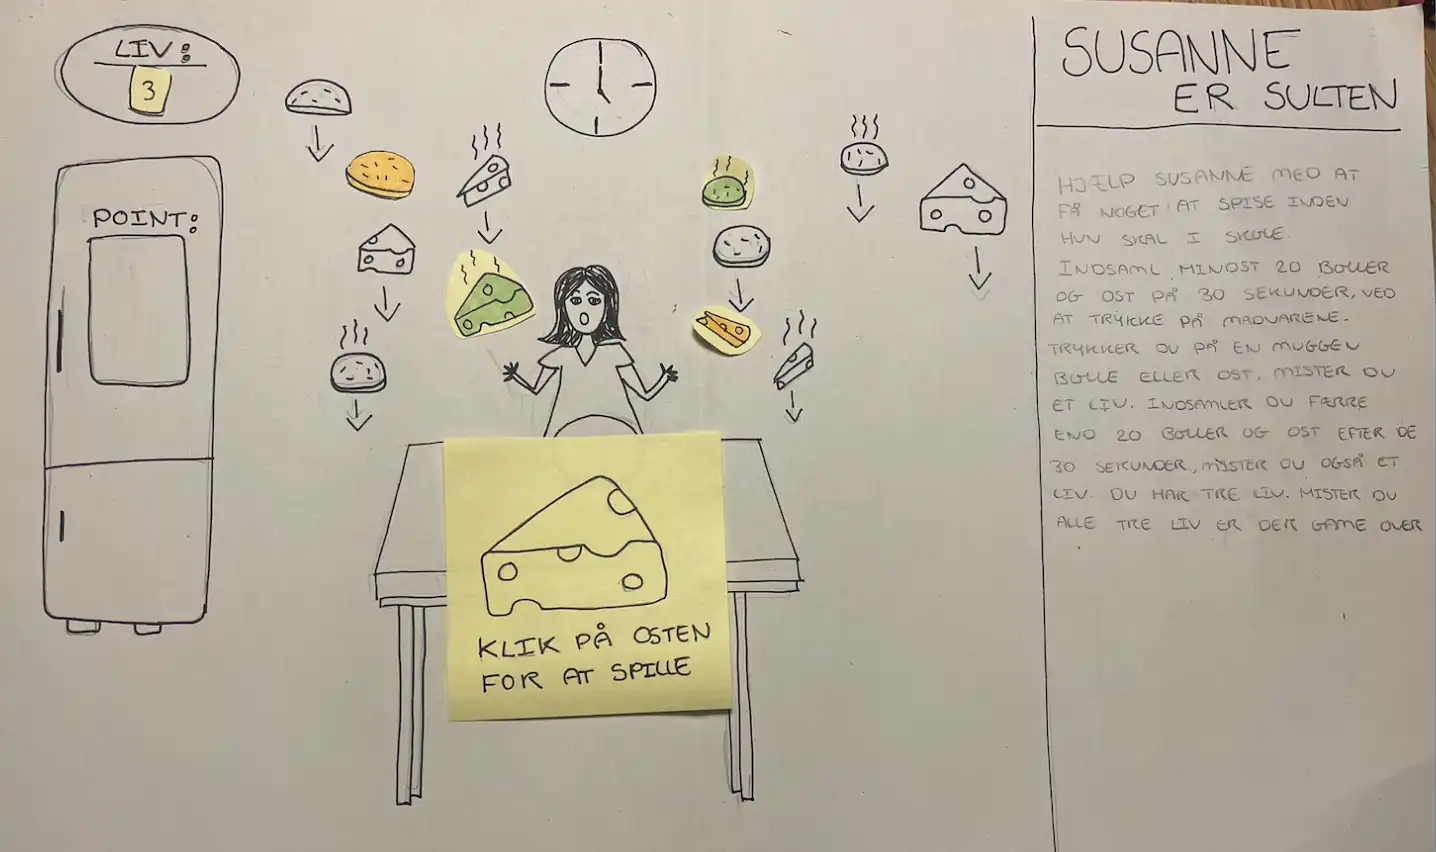 LIV:
3
POINT:
KLIK PÅ OSTEN
FOR AT SPILLE
SUSANNE
ER SULTEN
HJÆLP SUSANNE MED AT
FÅ NOGET AT SPISE INDEN
HUN SKAL I SKOLE.
INDSAML MINDST 20 BOLLER
OG OST PÅ 30 SEKUNDER, VED
AT TRYKKE PÅ MADVARENE.
TRYKKER DU PÅ EN MUGGEN
BOLLE ELLER OST, MISTER DU
ET LIV. INDSAMLER DU FÆRRE
END 20 BOLLER OG OST EFTER DE
30 SEKUNDER, MISTER DU OGSÅ ET
LIV. DU HAR TRE LIV. MISTER DU
ALLE TRE LIV ER DER GAME OVER